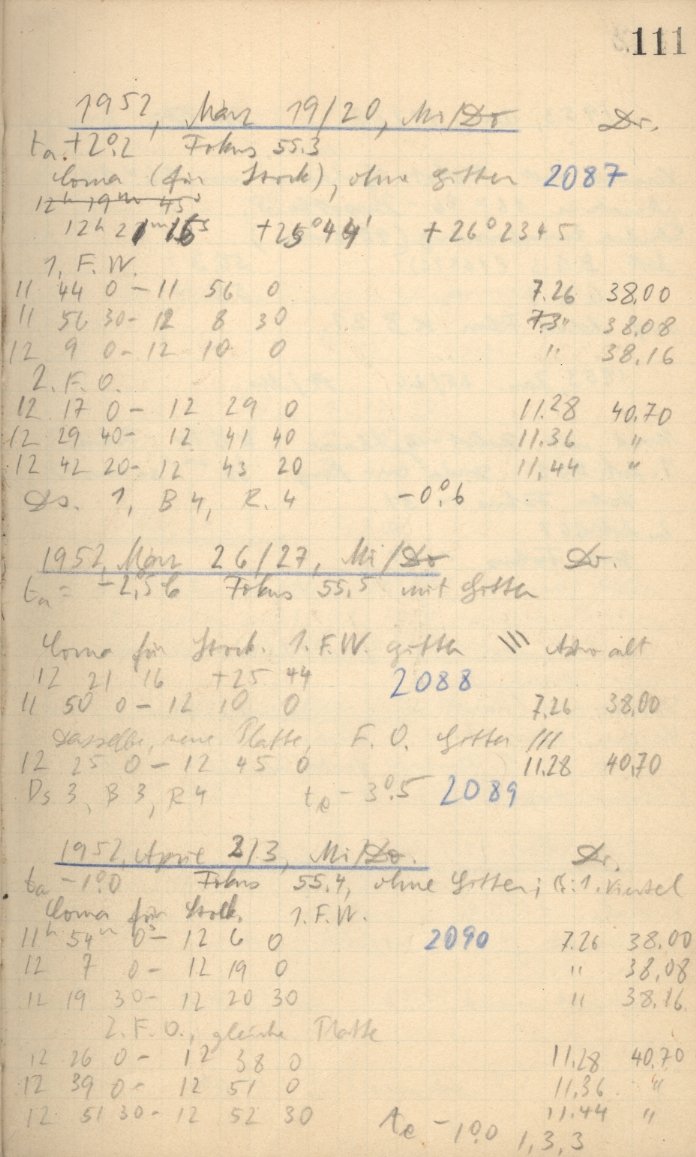 111
1952, März 19/20, Mi/Do Dr.
ta +2°.2 Fokus 55.3
Coma (für Stock), ohne Gitter 2087
12h 19m 45s
12h 21m 16s +25°44' +26°2345
1. F.W.
11 44 0 – 11 56 0 7.26 38.00
11 56 30 – 12 8 30 " 38.08
12 9 0 – 12 10 0 " 38.16
2. F.O.
12 17 0 – 12 29 0 11.28 40.70
12 29 40 – 12 41 40 11.36 "
12 42 20 – 12 43 20 11.44 "
Ds. 1, B 4, R. 4 –0°.6
1952, März 26/27, Mi/Do Dr.
ta = –2,5 Fokus 55,5 mit Gitter
Coma für Stock. 1. F.W. Gitter \\\ alt
12 21 16 +25 44 2088
11 50 0 – 12 10 0 7.26 38,00
Dasselbe, neue Platte, F.O. Gitter ///
12 25 0 – 12 45 0 11.28 40,70
Ds 3, B 3, R 4 te –3°.5 2089
1952, April 2/3, Mi/Do. Dr.
ta –1°.0 Fokus 55.4, ohne Gitter; 1. Viertel
Coma für Stock. 1. F.W.
11h 54m 0s – 12 6 0 2090 7.26 38.00
12 7 0 – 12 19 0 " 38,08
12 19 30 – 12 20 30 " 38,16
2. F.O., gleiche Platte
12 26 0 – 12 38 0 11.28 40,70
12 39 0 – 12 51 0 11,36 "
12 51 30 – 12 52 30 11.44 "
te –1°.0 1,3,3